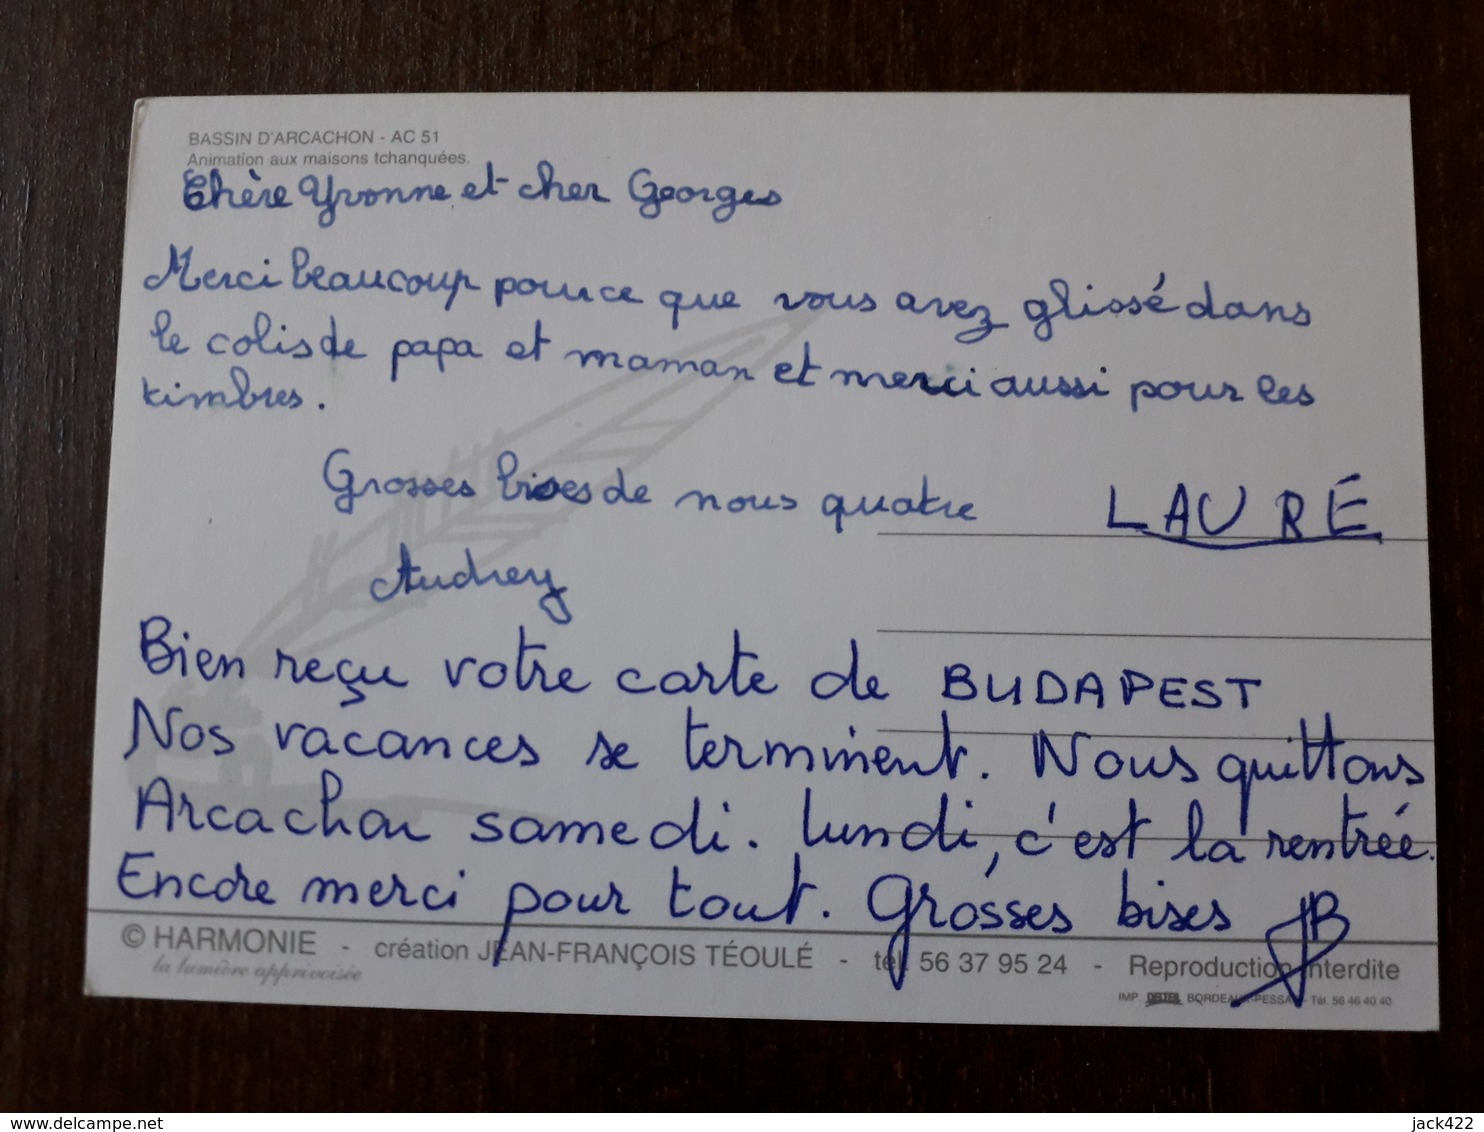 BASSIN D'ARCACHON - AC 51
Animation aux maisons tchanquées.
Chère Yvonne et cher Georges
Merci beaucoup pour ce que vous avez glissé dans
le colis de papa et maman et merci aussi pour les
timbres.
Grosses bises de nous quatre
LAURE
Audrey
Bien reçu votre carte de BUDAPEST
Nos vacances se terminent. Nous quittons
Arcachon samedi. lundi, c'est la rentrée.
Encore merci pour tout. Grosses bises JB
© HARMONIE - création JEAN-FRANÇOIS TÉOULÉ - tél. 56 37 95 24 - Reproduction interdite
la lumière apprivoisée
IMP. BORDEAUX-PESSAC - Tél. 56 46 40 40
jack422